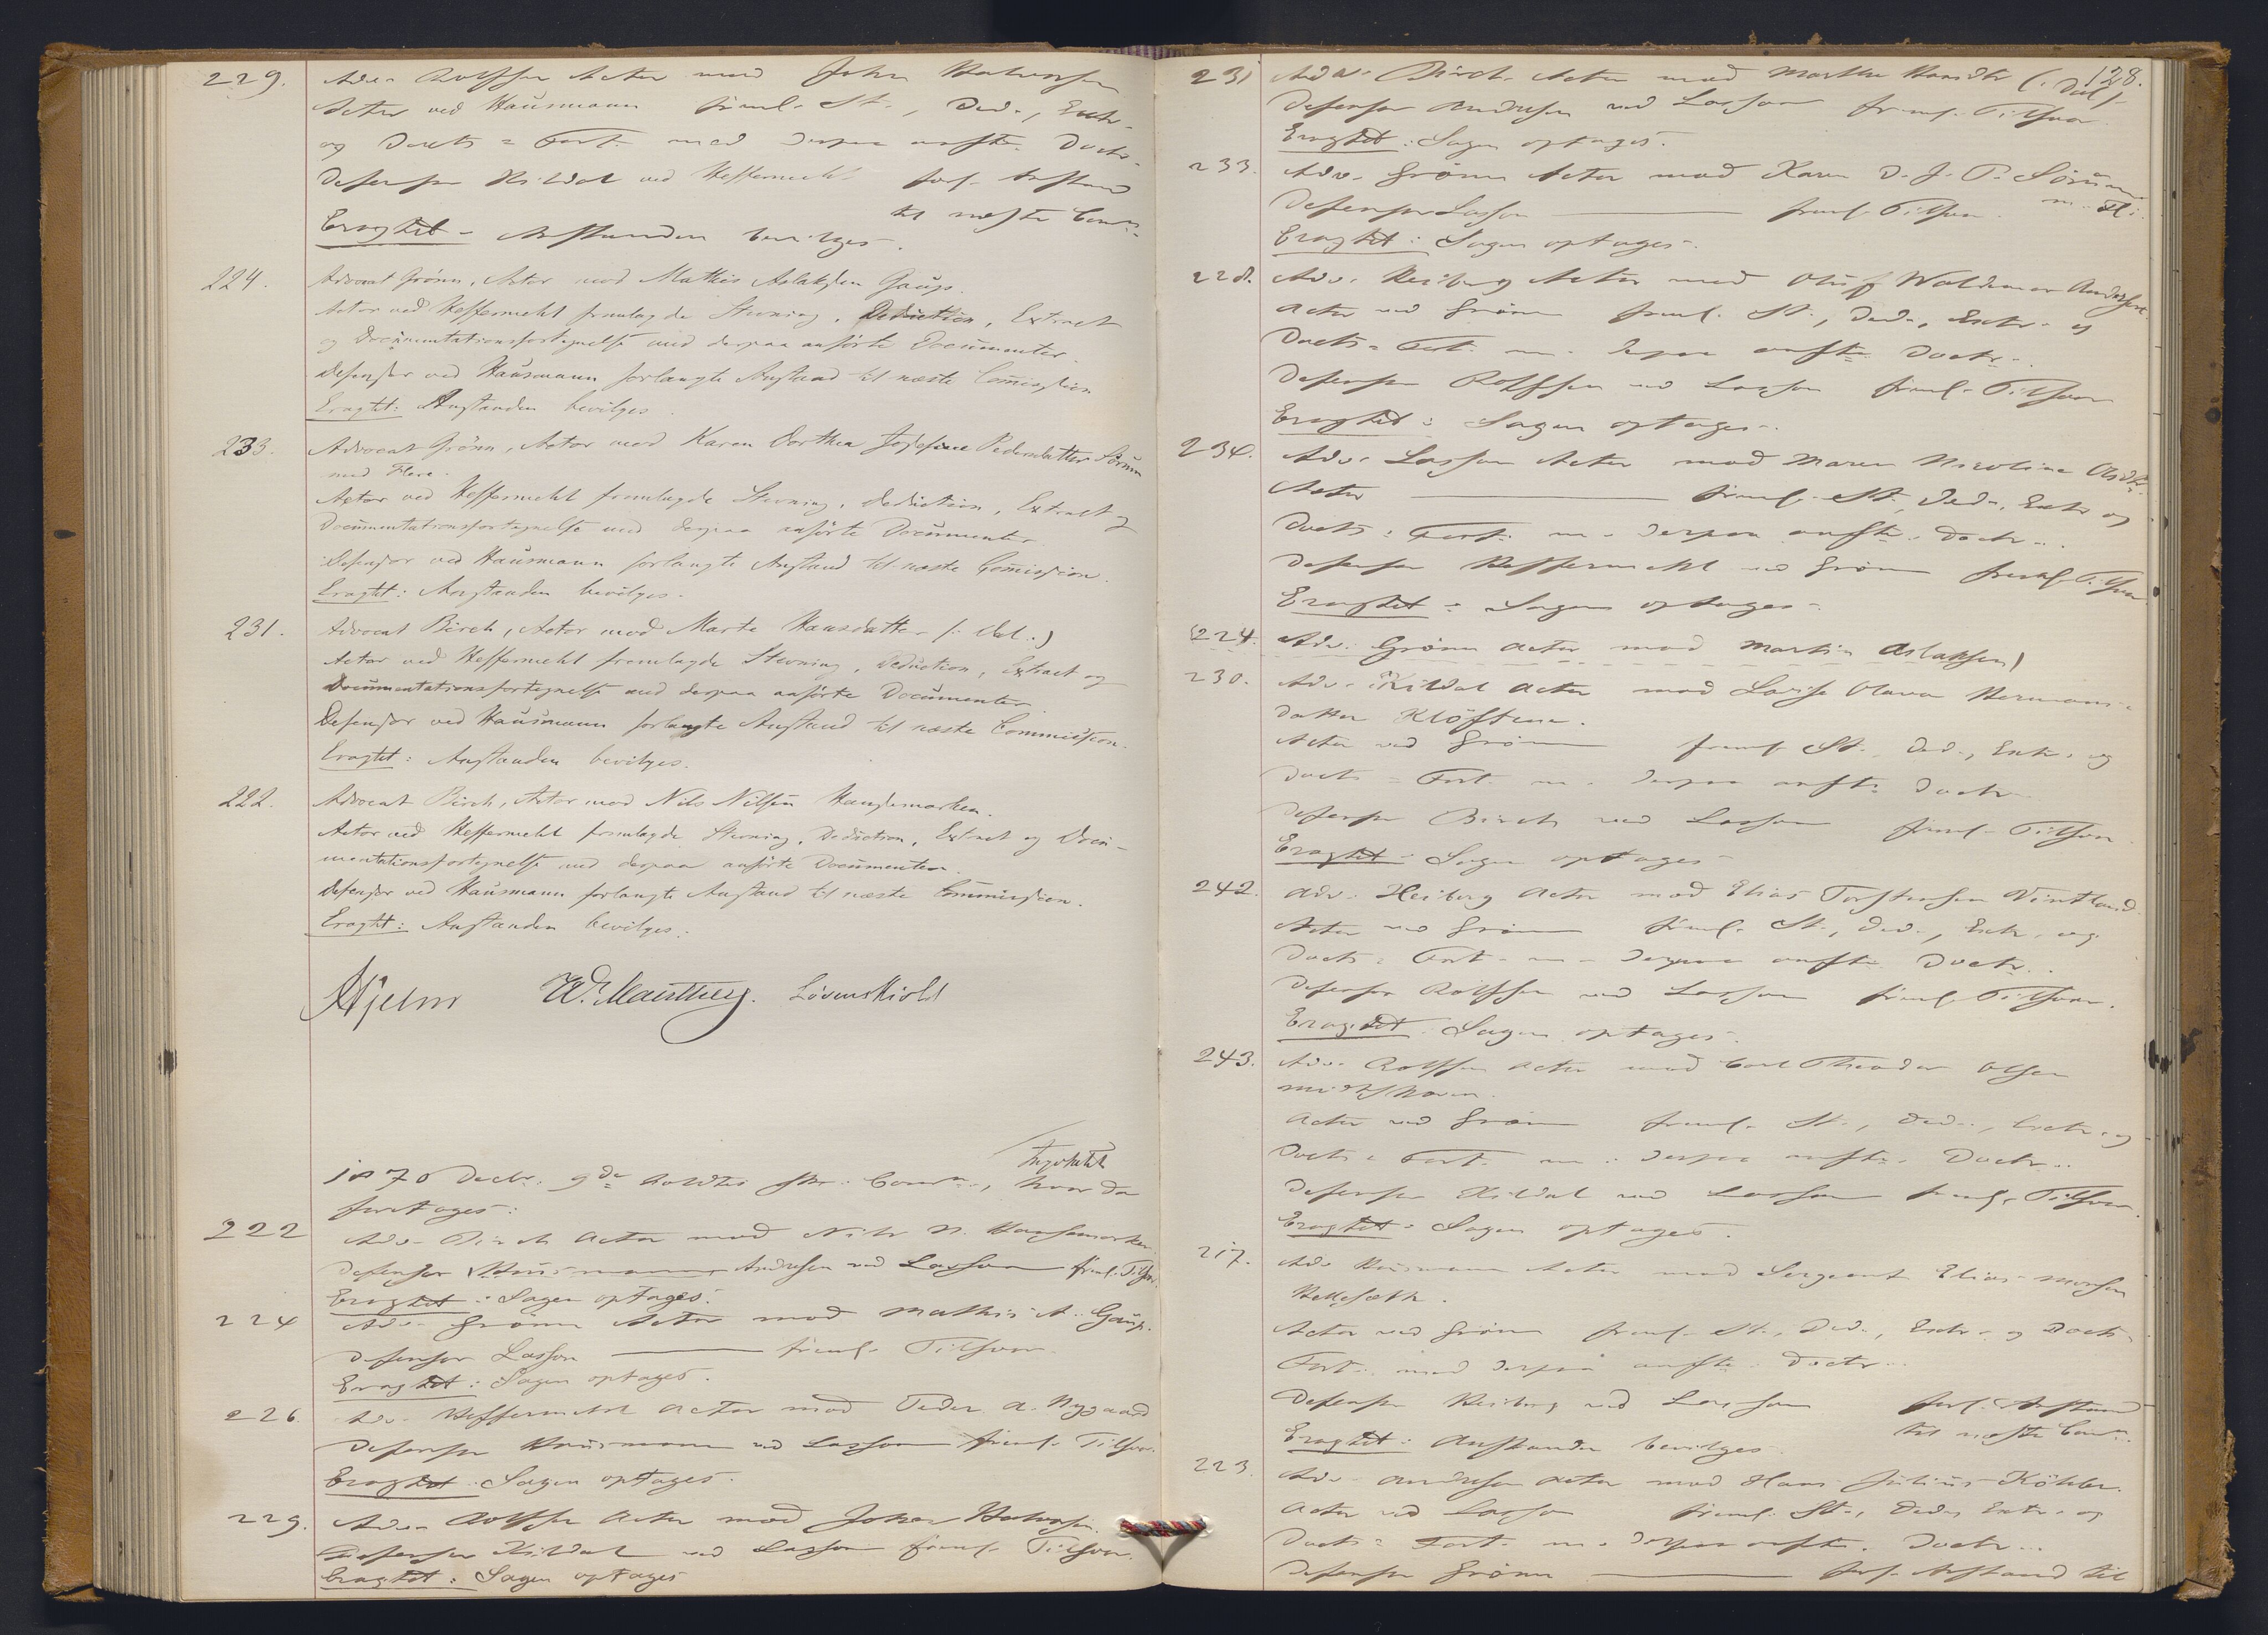 229. Adv. Rolffsen Actor mod Johan Halvorsen
Actor ved Hausmann freml. St., Ded., Extr.
og Docts = Fort. med derpaa anførte Doctr.
Defensor Kildal ved Heffermehl forl. Anstand
til næste Comn.
Eragtet – Anstanden bevilges.
224. Advocat Grönn, Actor mod Mathis Aslaksen Gaup.
Actor ved Heffermehl fremlagde Stevning, Deduction, Extract
og Documentationsfortegnelse med derpaa anførte Documenter.
Defensor ved Hausmann forlangte Anstand til næste Commission
Eragtet: Anstanden bevilges.
233. Advocat Grönn, Actor mod Karen Dorthea Josefine Pedersdatter Sörum
med Flere.
Actor ved Heffermehl fremlagde Stevning, Deduction, Extract og
Documentationsfortegnelse med derpaa anførte Documenter
Defensor ved Hausmann forlangte Anstand til næste Commission.
Eragtet: Anstanden bevilges.
231. Advocat Birch, Actor mod Marte Hansdatter (: Dal :)
Actor ved Heffermehl fremlagde Stevning, Deduction, Extract og
Documentationsfortegnelse med derpaa anförte Documenter.
Defensor ved Hausmann forlangte Anstand til næste Commission.
Eragtet: Anstanden bevilges.
222. Advocat Birch, Actor mod Nils Nilsen Hansemarken.
Actor ved Heffermehl fremlagde Stevning, Deduction, Extract og Docu-
mentationsfortegnelse med derpaa anförte Documenter.
Defensor ved Hausmann forlangte Anstand til næste Commission.
Eragtet: Anstanden bevilges.
Hjelm Løvenskiold
1870 Decbr. 9de holdtes Comn., hvor da
foretages:
222 Adv. Birch Actor mod Nils N. Hansemarken.
Defensor Andresen ved Lasson freml. Tilsvar.
Eragtet: Sagen optages.
224 Adv. Grönn Actor mod Mathis A. Gaup.
Defensor Lasson freml. Tilsvar.
Eragtet: Sagen optages.
226. Adv. Heffermehl Actor mod Peder A. Nygaard
Defensor Hausmann ved Lasson freml. Tilsvar.
Eragtet: Sagen optages.
229. Adv. Rolffsen Actor mod Johan Halvorsen.
Defensor Kildal ved Lasson freml. Tilsvar.
Eragtet: Sagen optages
128.
231 Adv. Birch Actor mod Marthe Hansdtr (: Dal :)
Defensor Andresen ved Lasson freml. Tilsvar
Eragtet: Sagen optages.
233. Adv. Grönn Actor mod Karen D. J. P. Sörum
m. Fl.
Defensor Lasson freml. Tilsvar.
Eragtet: Sagen optages.
228. Adv. Heiberg Actor mod Oluf Waldemar Andersen.
Actor ved Grönn freml. St., Ded., Extr. og
Docts = Fort. m. derpaa anførte Doctr.
Defensor Rolffsen ved Lasson freml. Tilsvar
Eragtet: Sagen optages.
234. Adv. Lasson Actor mod Maren Nicoline Olsdtr.
Actor freml. St., Ded., Extr. og
Docts = Fort. m. derpaa anførte Doctr.
Defensor Heffermehl ved Grönn freml. Tilsvar.
Eragtet: Sagen optages.
(224. Adv. Grönn Actor mod Martin Aslaksen)
230. Adv. Kildal Actor mod Lovise Olava Hermans-
datter Klöfteen.
Actor ved Grönn freml. St., Ded., Extr. og
Docts = Fort. m. derpaa anførte Doctr.
Defensor Birch ved Lasson freml. Tilsvar.
Eragtet: Sagen optages
242. Adv. Heiberg Actor mod Elias Torstensen Vintland.
Actor ved Grönn freml. St., Ded., Extr. og
Docts = Fort. m. derpaa anførte Doctr.
Defensor Rolffsen ved Lasson freml. Tilsvar.
Eragtet: Sagen optages.
243. Adv. Rolffsen Actor mod Carl Theodor Olsen
Actor ved Grönn freml. St., Ded., Extr. og
Docts = Fort. m. derpaa anførte Doctr.
Defensor Kildal ved Lasson freml. Tilsvar.
Eragtet: Sagen optages.
217. Adv. Hausmann Actor mod Sergeant Elias Monsen
Hellesæth.
Actor ved Grönn freml. St., Ded., Extr. og Docts
Fort. med derpaa anførte Doctr.
Defensor Heiberg ved Lasson forl. Anstand
til næste Comn.
Eragtet: Anstanden bevilges.
223. Adv. Andresen Actor mod Hans Julius Köhler.
Actor ved Lasson freml. St., Ded., Extr. og
Docts = Fort. m. derpaa anførte Doctr.
Defensor Grönn forl. Anstand til